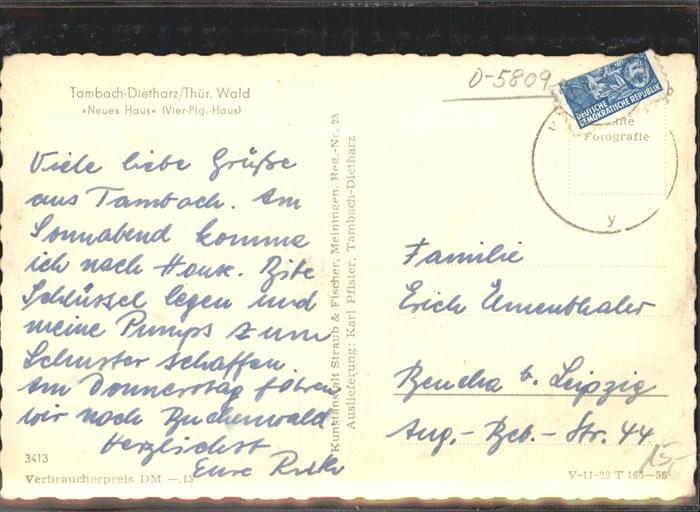 Tambach-Dietharz/Thür. Wald
»Neues Haus« (Vier-Plg.-Haus)
Viele liebe Grüße
aus Tambach. Am
Sonnabend komme
ich nach Hause. Bitte
Schlüssel legen und
meine Pumps zum
Schuster schaffen.
Am Donnerstag fahren
wir nach Buchenwald
Herzlichst
Eure
3413
Verbraucherpreis DM —.15
Kunstanstalt Straub & Fischer, Meiningen. Reg.-Nr. 23
Auslieferung: Karl Pfister, Tambach-Dietharz
D-5809
5
DEUTSCHE
DEMOKRATISCHE REPUBLIK
Fotografie
y
Familie
Erich
b. Leipzig
Aug.-Beb.-Str. 44
15,-
V-11-28 T 165—56